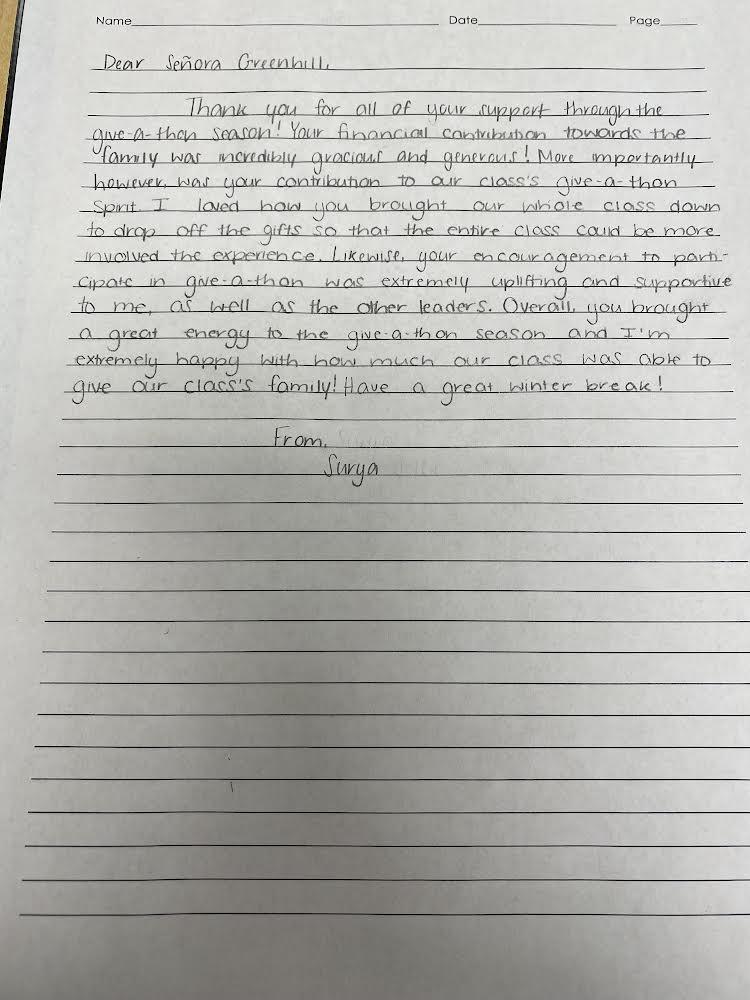 Name Date Page
Dear Señora Greenhill,
Thank you for all of your support through the
give-a-thon season! Your financial contribution towards the
family was incredibly gracious and generous! More importantly
however, was your contribution to our class's give-a-thon
Spirit. I loved how you brought our whole class down
to drop off the gifts so that the entire class could be more
involved the experience. Likewise, your encouragement to parti-
cipate in give-a-thon was extremely uplifting and supportive
to me, as well as the other leaders. Overall, you brought
a great energy to the give-a-thon season and I'm
extremely happy with how much our class was able to
give our class's family! Have a great winter break!
From,
Surya